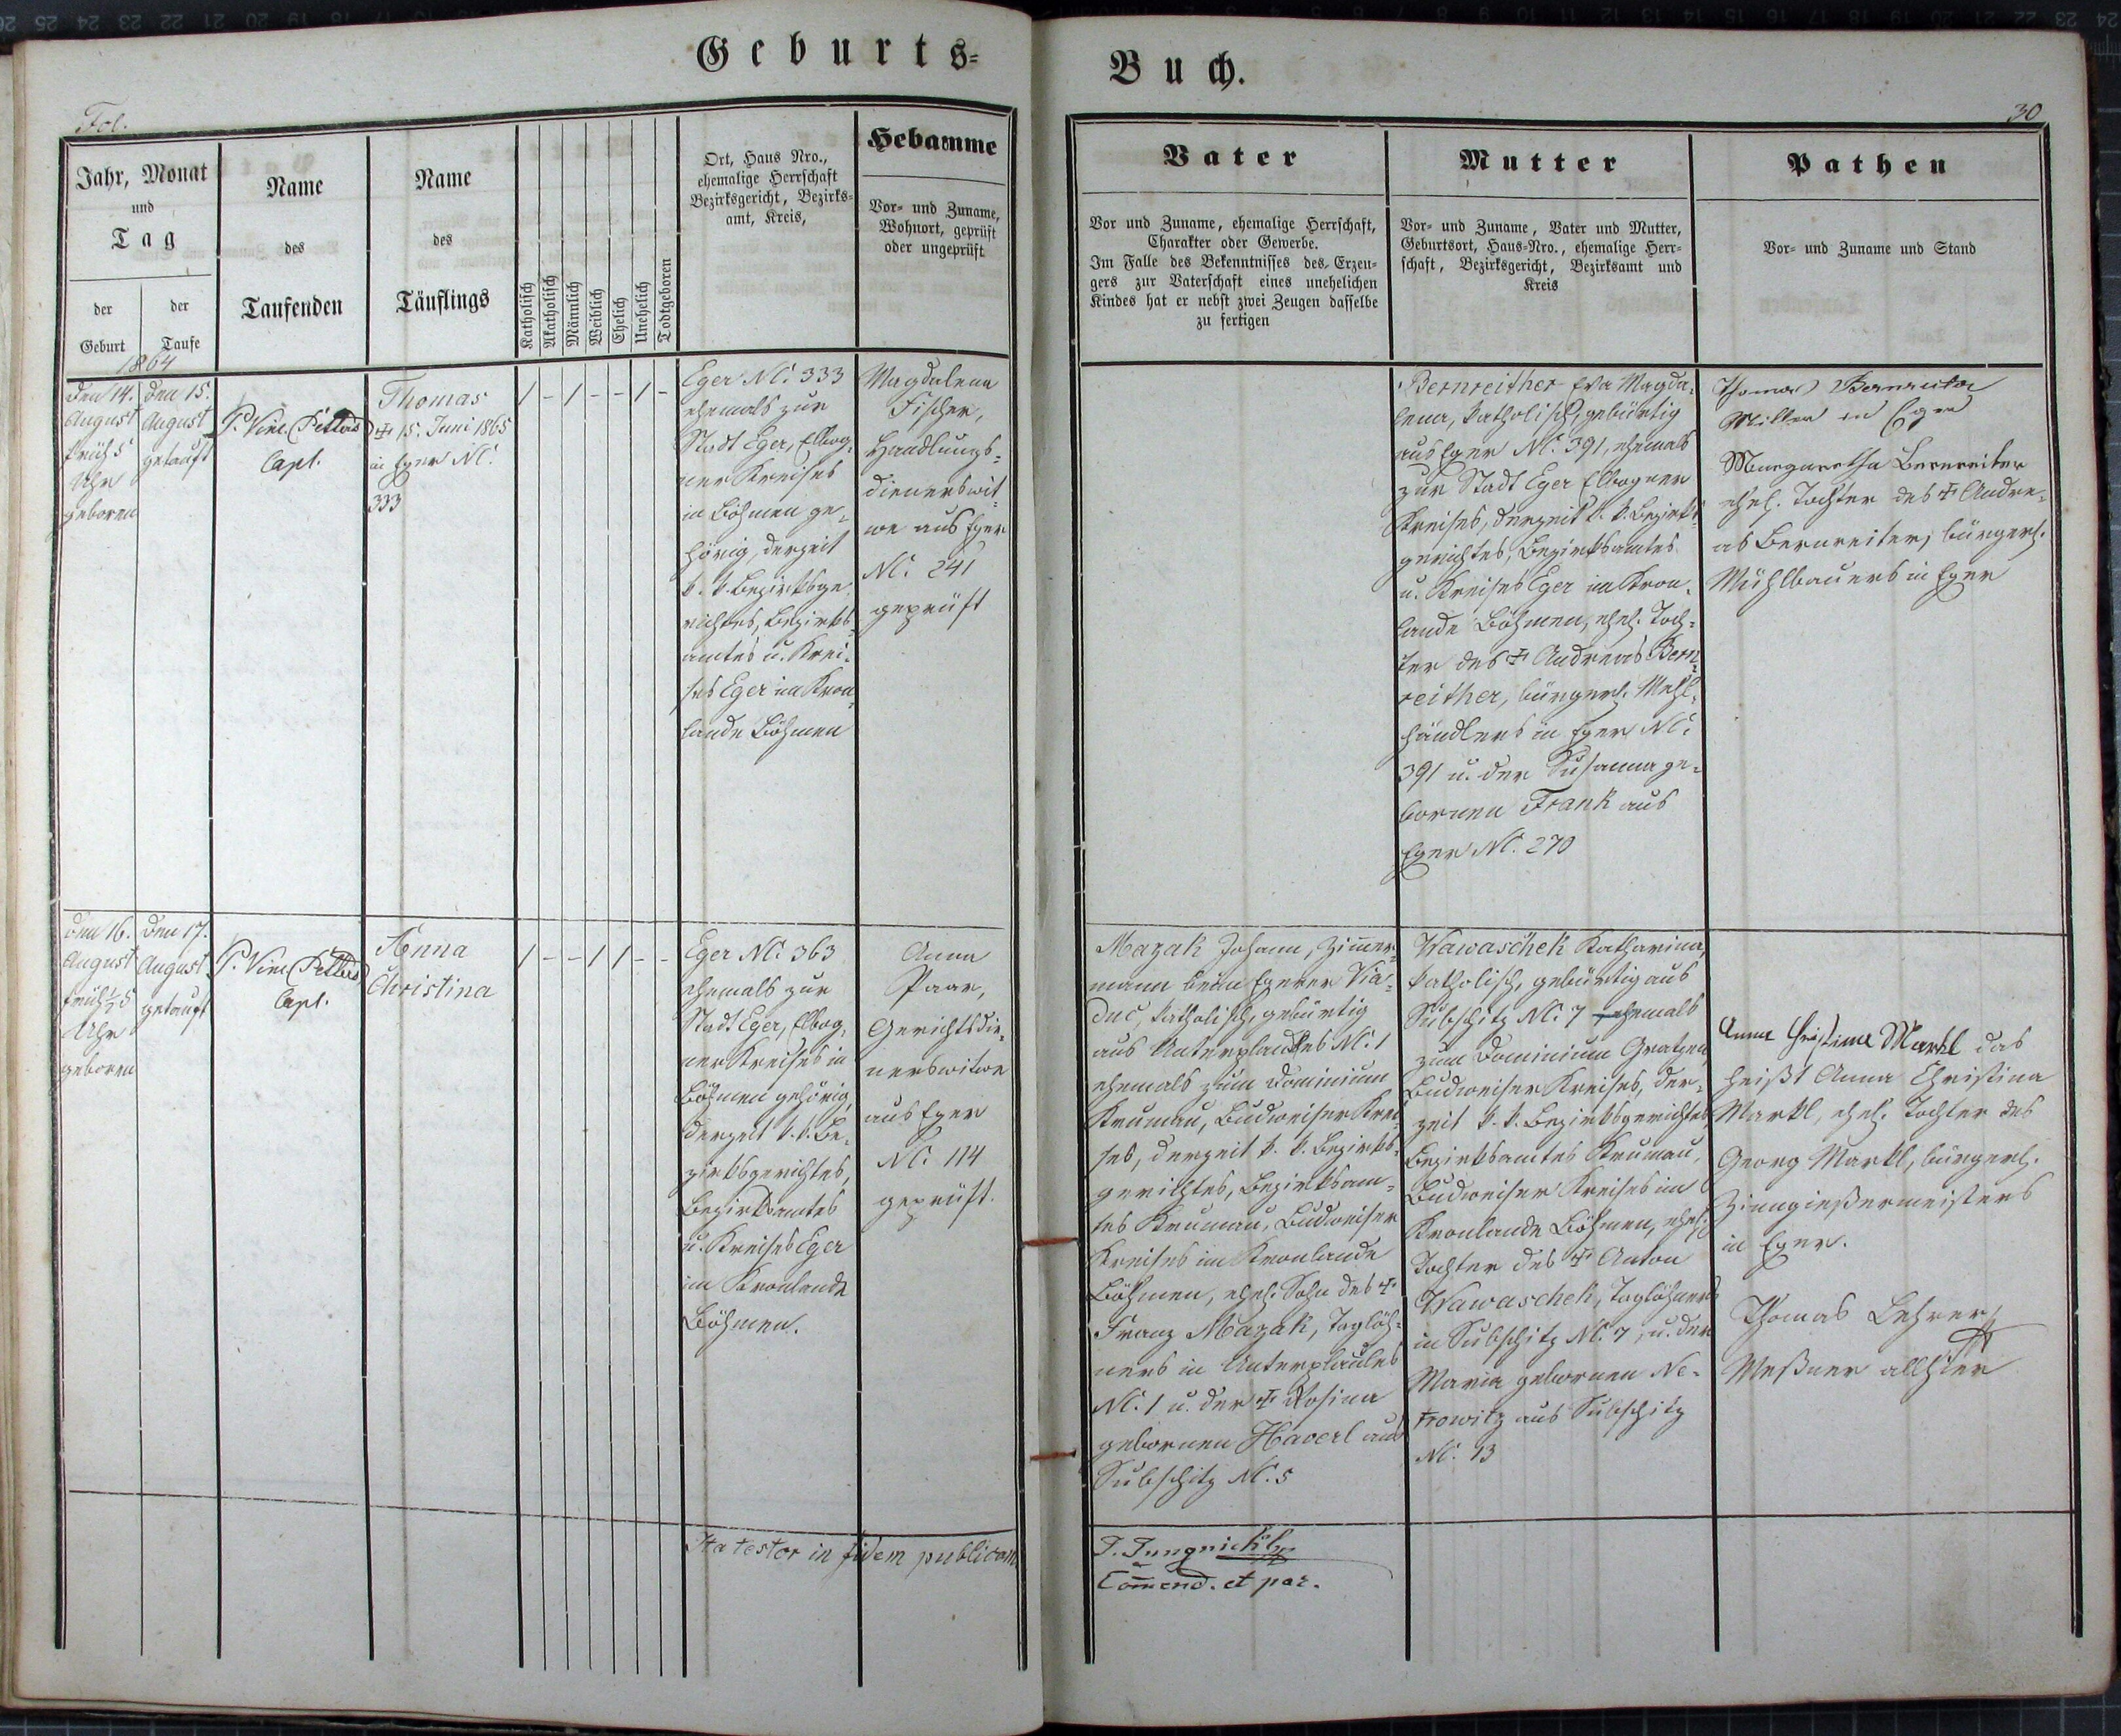 Geburts=
Buch.
Fol.
30
Jahr, Monat
und
Tag
der
Geburt
der
Taufe
Name
des
Taufenden
Name
des
Täuflings
Katholisch
Akatholisch
Männlich
Weiblich
Ehelich
Unehelich
Todtgeboren
Ort, Haus Nro.,
ehemalige Herrschaft
Bezirksgericht, Bezirks=
amt, Kreis,
Hebamme
Vor- und Zuname,
Wohnort, geprüft
oder ungeprüft
Vater
Vor und Zuname, ehemalige Herrschaft,
Charakter oder Gewerbe.
Im Falle des Bekenntnisses des Erzeu=
gers zur Vaterschaft eines unehelichen
Kindes hat er nebst zwei Zeugen dasselbe
zu fertigen
Mutter
Vor- und Zuname, Vater und Mutter,
Geburtsort, Haus-Nro., ehemalige Herr=
schaft, Bezirksgericht, Bezirksamt und
Kreis
Pathen
Vor- und Zuname und Stand
1864
den 14.
August
früh 5
Uhr
geboren
den 15.
August
getauft
P. Vinc. Petters
Capl.
Thomas
† 15. Juni 1865
in Eger NC.
333
/ - / - - / -
Eger NC. 333
ehemals zur
Stadt Eger, Elbog=
ner Kreises
in Böhmen ge=
hörig, derzeit
k. k. Bezirksge=
richtes, Bezirks=
amtes u. Krei=
ses Eger im Kron=
lande Böhmen
Magdalena
Fischer,
Handlungs=
dienerswit=
we aus Eger
NC. 241
geprüft
Bernreither Eva Magda=
lena, katholisch, gebürtig
aus Eger NC. 391, ehemals
zur Stadt Eger Elbogner
Kreises, derzeit k. k. Bezirks=
gerichtes, Bezirksamtes
u. Kreises Eger im Kron=
lande Böhmen, ehel. Toch=
ter des † Andreas Bern=
reither, bürgerl. Mehl=
händlers in Eger NC.
391 u. der Susanna ge=
bornen Frank aus
Eger NC. 270
Thomas Bernreiter
Müller in Eger
Margaretha Bernreiter
ehel. Tochter des † Andre=
as Bernreiter, bürgerl.
Mühlbauers in Eger
den 16.
August
früh ½5
Uhr
geboren
den 17.
August
getauft
P. Vinc. Petters
Capl.
Anna
Christina
/ - - / / - -
Eger NC. 363
ehemals zur
Stadt Eger, Elbog=
ner Kreises in
Böhmen gehörig,
derzeit k. k. Be=
zirksgerichtes,
Bezirksamtes
u. Kreises Eger
im Kronlande
Böhmen.
Anna
Paar,
Gerichtsdie=
nerswitwe
aus Eger
NC. 114
geprüft.
Mazak Johann, Zimmer=
mann beim Egerer Via=
duc, katholisch, gebürtig
aus NC. 1
ehemals zum Dominium
Krumau, Budweiser Krei=
ses, derzeit k. k. Bezirks=
gerichtes, Bezirksam=
tes Krumau, Budweiser
Kreises im Kronlande
Böhmen, ehel. Sohn des †
Franz Mazak, Taglöh=
ners in Unterplaudes
NC. 1 u. der † Rosina
gebornen Haverl aus
Subschitz NC. 5
Wawaschek Katharina,
katholisch, gebürtig aus
Subschitz NC. 7 ehemals
zum Dominium Gratzen,
Budweiser Kreises, der=
zeit k. k. Bezirksgerichtes,
Bezirksamtes Krumau,
Budweiser Kreises im
Kronlande Böhmen, ehel.
Tochter des † Anton
Wawaschek, Taglöhners
in Subschitz NC. 7, u. der
Maria gebornen Ne=
trowitz aus Subschitz
NC. 13
Anna Christina Markl das
heißt Anna Christina
Markl, ehel. Tochter des
Georg Markl, bürgerl.
Zinngießermeisters
in Eger.
Thomas Lehrer
Meßner allhier
Ita testor in fidem publicam
J. Jungnickl
Com̄end. et par.